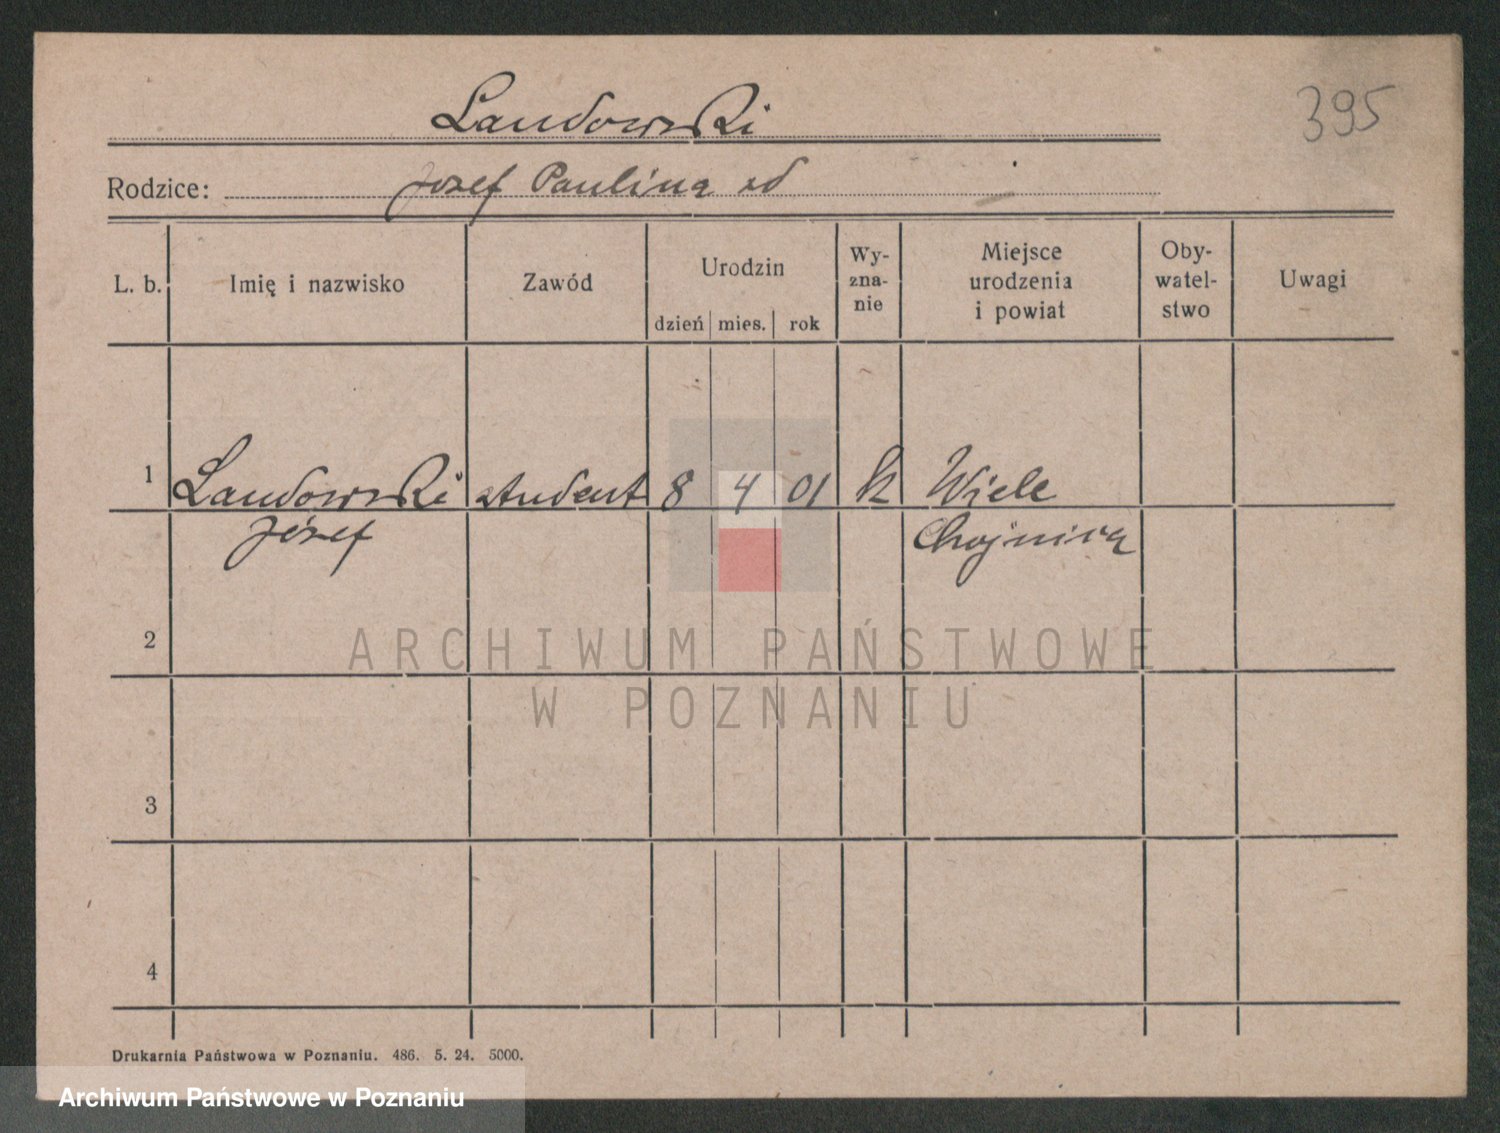 Landowski
395
Rodzice: Józef Paulina
L. b.
Imię i nazwisko
Zawód
Urodzin
dzień mies. rok
Wy-
zna-
nie
Miejsce
urodzenia
i powiat
Oby-
watel-
stwo
Uwagi
1 Landowski student 8 4 01 k Wiele
Józef Chojnica
2
ARCHIWUM PAŃSTWOWE
W POZNANIU
3
4
Drukarnia Państwowa w Poznaniu. 486. 5. 24. 5000.
Archiwum Państwowe w Poznaniu